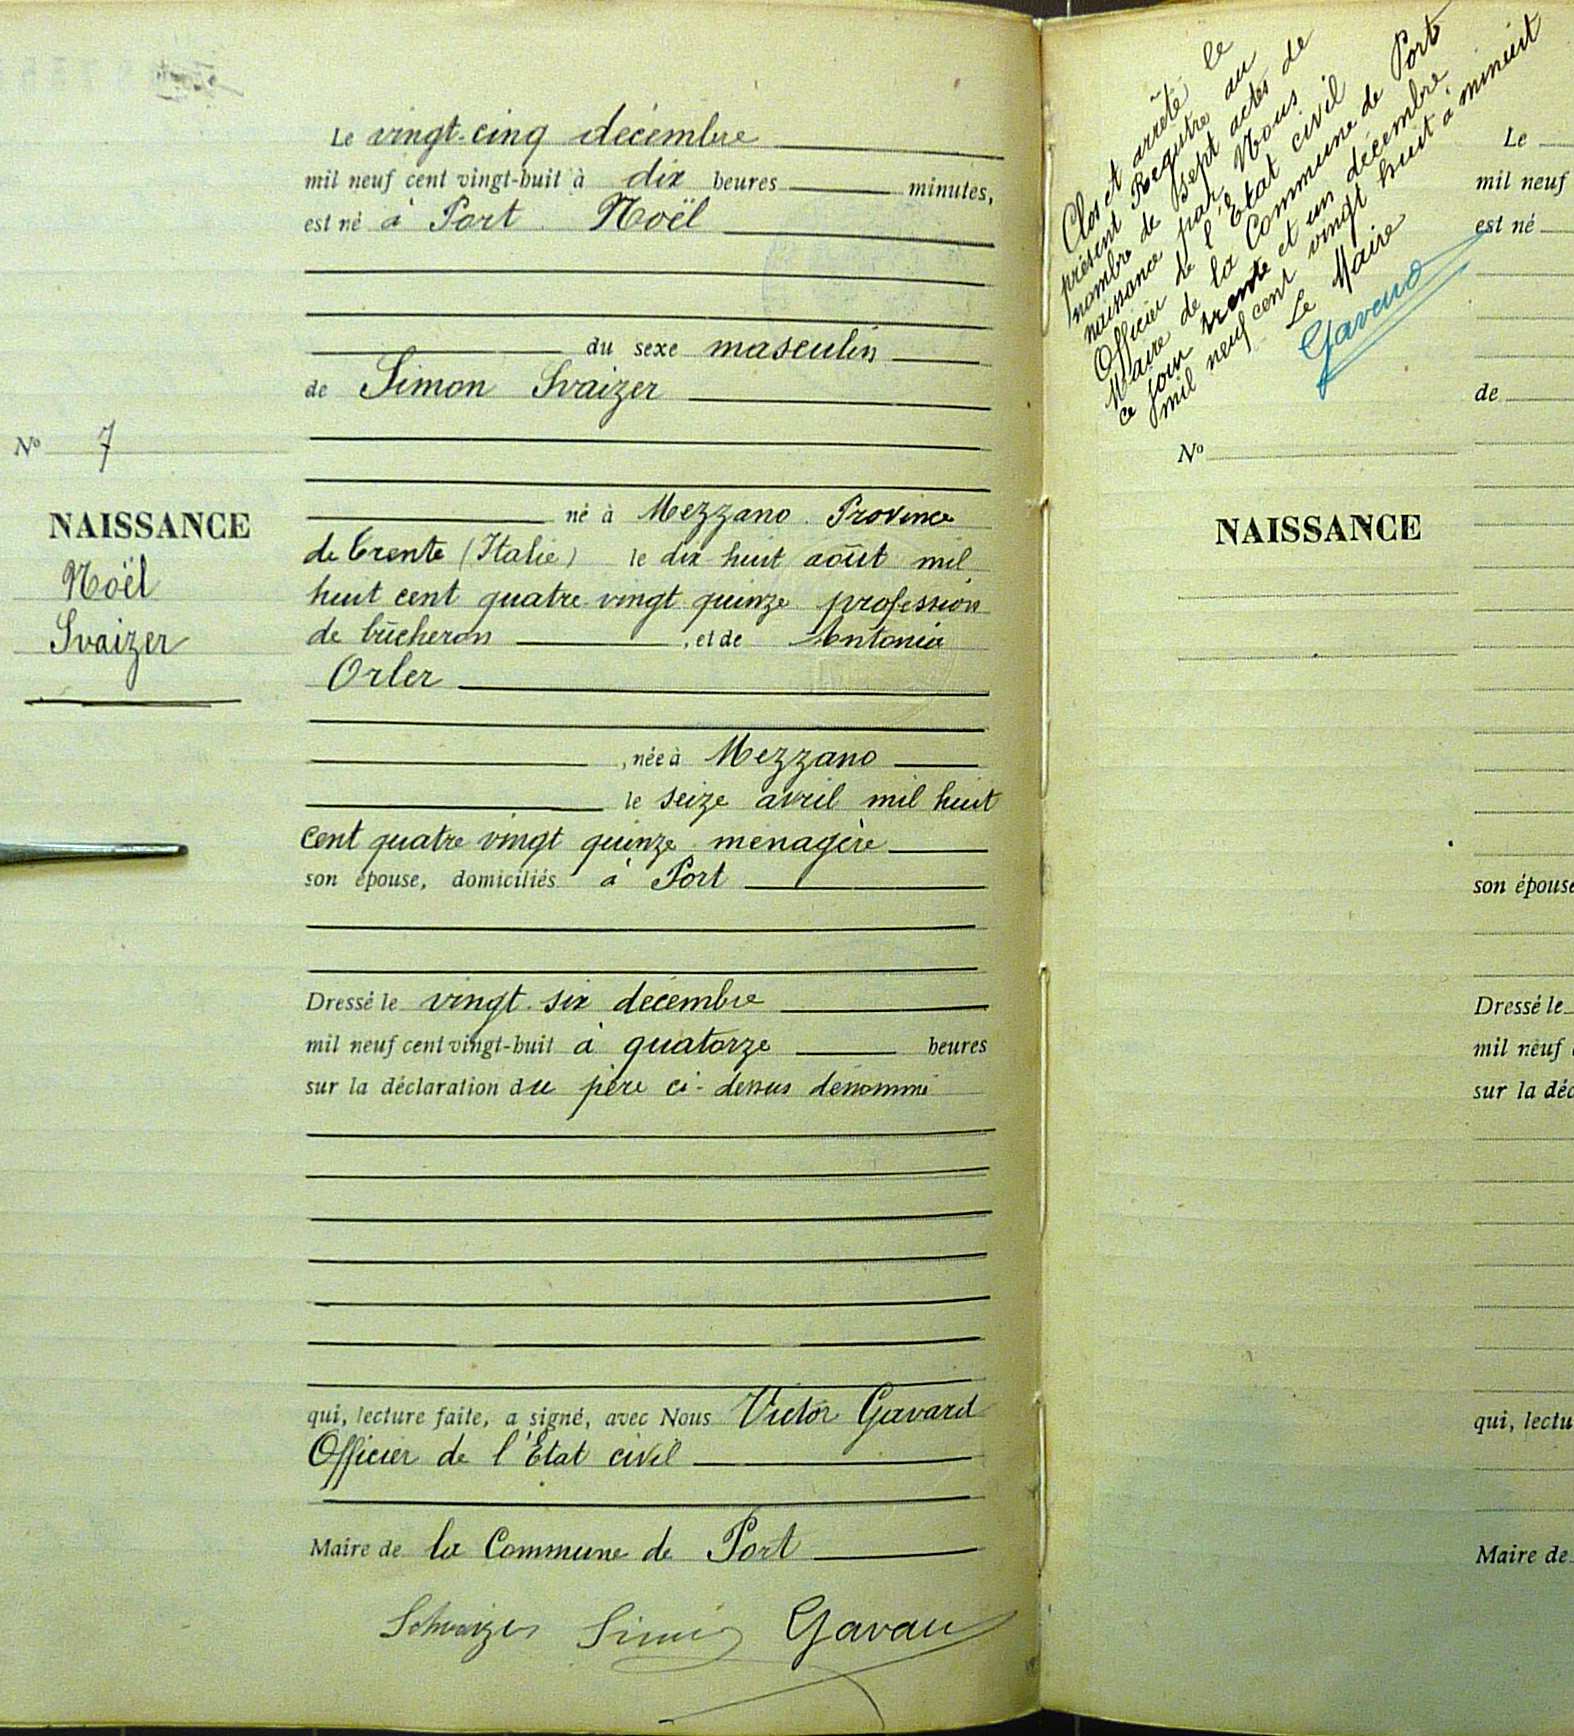 Le vingt-cinq décembre
mil neuf cent vingt-huit à dix heures minutes,
est né à Port Noël
du sexe masculin
de Simon Svaizer
Nº 7
NAISSANCE
Noël
Svaizer
né à Mezzano Province
de Trente (Italie) le dix huit août mil
huit cent quatre vingt quinze profession
de bûcheron, et de Antonia
Orler
, née à Mezzano
le seize avril mil huit
cent quatre vingt quinze ménagère
son épouse, domiciliés à Port
Dressé le vingt-six décembre
mil neuf cent vingt-huit à quatorze heures
sur la déclaration du père ci-dessus dénommé
qui, lecture faite, a signé, avec Nous Victor Gavard
Officier de l'Etat civil
Maire de la Commune de Port
Schvaizer Simon Gavard
Clos et arrêté le
présent Registre au
nombre de Sept actes de
naissance par Nous
Officier de l'Etat civil
Maire de la Commune de Port
ce jour trente et un décembre
mil neuf cent vingt huit à minuit
Le Maire
Gavard
Nº
NAISSANCE
Le
mil neuf
est né
de
son épouse
Dressé le
mil neuf
sur la déc
qui, lectu
Maire de